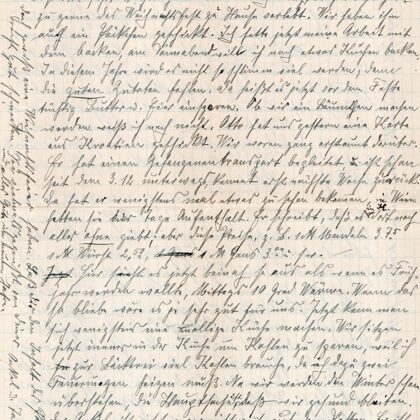 zu gerne das Weihnachtsfest zu Hause verlebt. Wir haben ihm
auch ein Päckchen geschickt. Ich hatte jetzt meine Arbeit mit
dem backen, am Sonnabend will ich noch etwas Kuchen backen.
In diesem Jahre wird es nicht so schlimm viel werden, denn
die guten Zutaten fehlen. Da heißt es jetzt vor dem Feste
tüchtig Butter u. Eier einsparen. Ob wir ein Bäumchen machen
werden weiß ich noch nicht. Otto hat uns gestern eine Karte
aus Kroatien geschickt. Wir waren ganz erstaunt darüber.
Er hat einen Gefangenentransport begleitet u. ist schon
seit dem 3.12. unterwegs, kommt erst nächste Woche zurück.
Da hat er wenigstens mal etwas zu sehen bekommen. In Wien
hatten sie Tage Aufenthalt. Er schreibt, daß es dort noch
alles ohne giebt, aber diese Preise, z. B. 1 M Mandeln 3,75
1 M Wurst 2,52, 1 M Gans 3.00 u. s. w. —
Hier sieht es jetzt beinah so aus als wenn es Früh
jahr werden wollte, Mittags 10 Grad Wärme. Wenn das
so bliebe wäre es ja sehr gut für uns. Jetzt kann man
sich wenigstens eine mollige Küche machen. Wir sitzen
jetzt immer in der Küche um Kohlen zu sparen, weil ich
zur Bäckerei viel Kohlen brauche, da ich dazu zwei
Feuerungen heizen muß. Na wir werden den Winter schon
überstehen, die Hauptsache ist daß wir gesund bleiben.